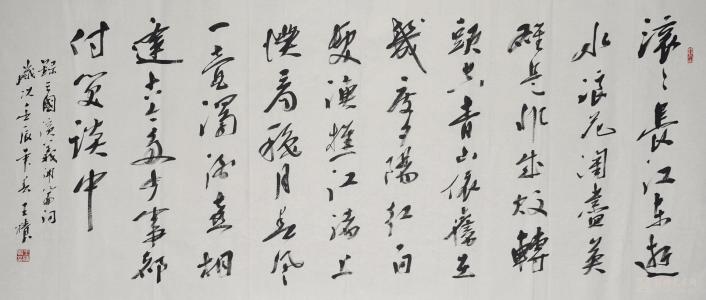 滚〻長江东逝
水浪花淘盡英
雄是非成敗轉
頭空青山依舊在
幾度夕陽红白
髮漁樵江渚上
惯看秋月春风
一壶濁酒喜相
逢古今多少事都
付笑谈中
錄三國演義開篇词
歲次壬辰年春王